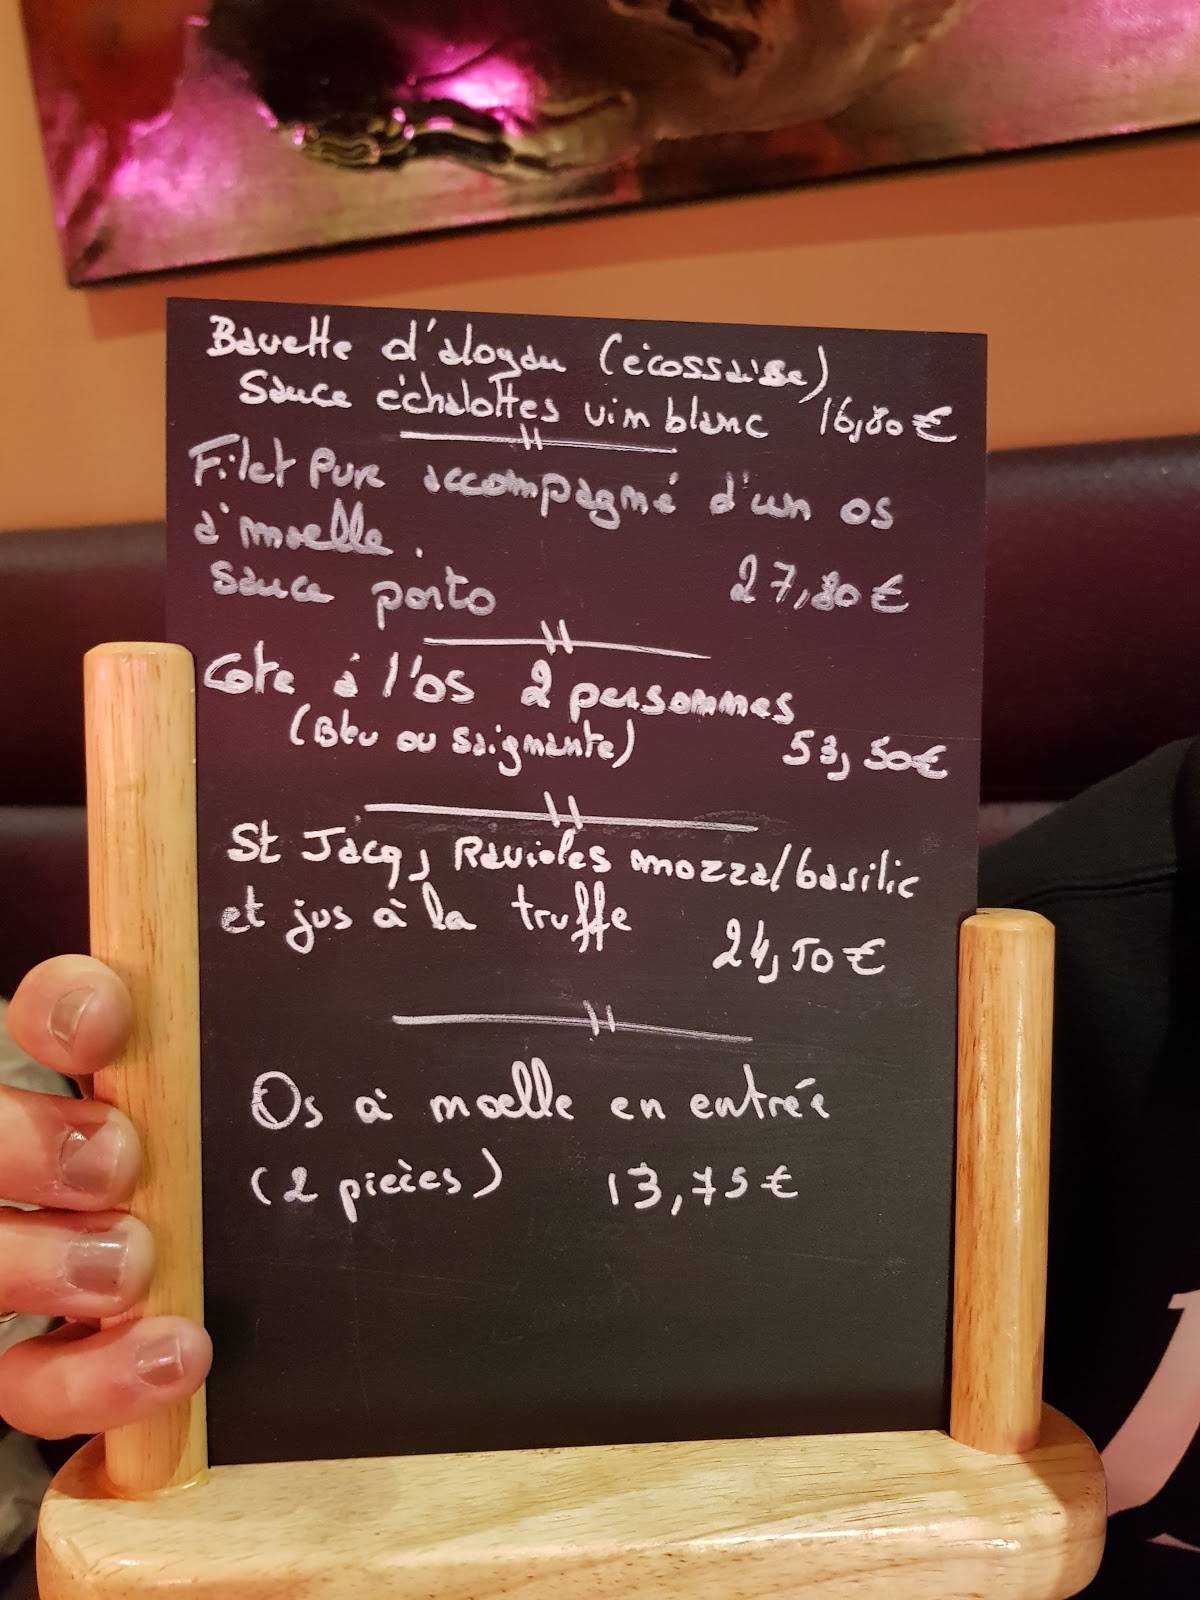 Bavette d'aloyau (écossaise)
Sauce échalottes vin blanc 16,80€
Filet Pur accompagné d'un os
à moelle.
Sauce porto 27,80€
Cote à l'os 2 personnes
(Bleu ou saignante) 53,50€
St Jacq, Ravioles mozza/basilic
et jus à la truffe 24,50€
Os à moelle en entrée
(2 pièces) 13,75€